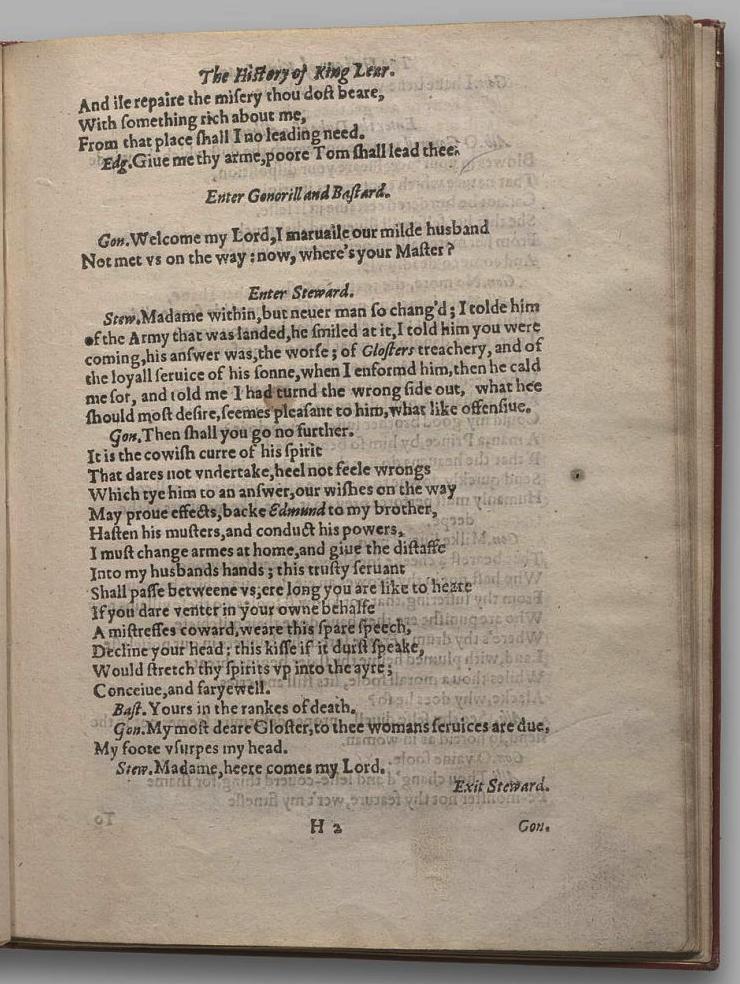 The Hiſtory of King Lear.
And ile repaire the miſery thou doſt beare,
With ſomething rich about me,
From that place ſhall I no leading need.
Edg. Giue me thy arme, poore Tom ſhall lead thee.
Enter Gonorill and Baſtard.
Gon. Welcome my Lord, I maruaile our milde husband
Not met vs on the way : now, where's your Maſter ?
Enter Steward.
Stew. Madame within, but neuer man ſo chang'd ; I tolde him
of the Army that was landed, he ſmiled at it, I told him you were
coming, his anſwer was, the worſe ; of Gloſters treachery, and of
the loyall ſeruice of his ſonne, when I enformd him, then he cald
me ſot, and told me I had turnd the wrong ſide out, what hee
ſhould moſt deſire, ſeemes pleaſant to him, what like offenſiue.
Gon. Then ſhall you go no further.
It is the cowiſh curre of his ſpirit
That dares not vndertake, heel not feele wrongs
Which tye him to an anſwer, our wiſhes on the way
May proue effects, backe Edmund to my brother,
Haſten his muſters, and conduct his powers,
I muſt change armes at home, and giue the diſtaffe
Into my husbands hands ; this truſty ſeruant
Shall paſſe betweene vs, ere long you are like to heare
If you dare venter in your owne behalfe
A miſtreſſes coward, weare this ſpare ſpeech,
Decline your head ; this kiſſe if it durſt ſpeake,
Would ſtretch thy ſpirits vp into the ayre ;
Conceiue, and faryewell.
Baſt. Yours in the rankes of death.
Gon. My moſt deare Gloſter, to thee womans ſeruices are due,
My foote vſurpes my head.
Stew. Madame, heere comes my Lord.
Exit Steward.
H 2 Gon.